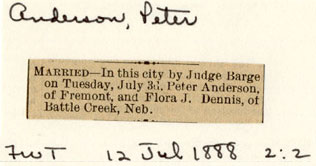 Anderson, Peter
MARRIED—In this city by Judge Barge
on Tuesday, July 3d, Peter Anderson,
of Fremont, and Flora J. Dennis, of
Battle Creek, Neb.
FWT 12 Jul 1888 2:2